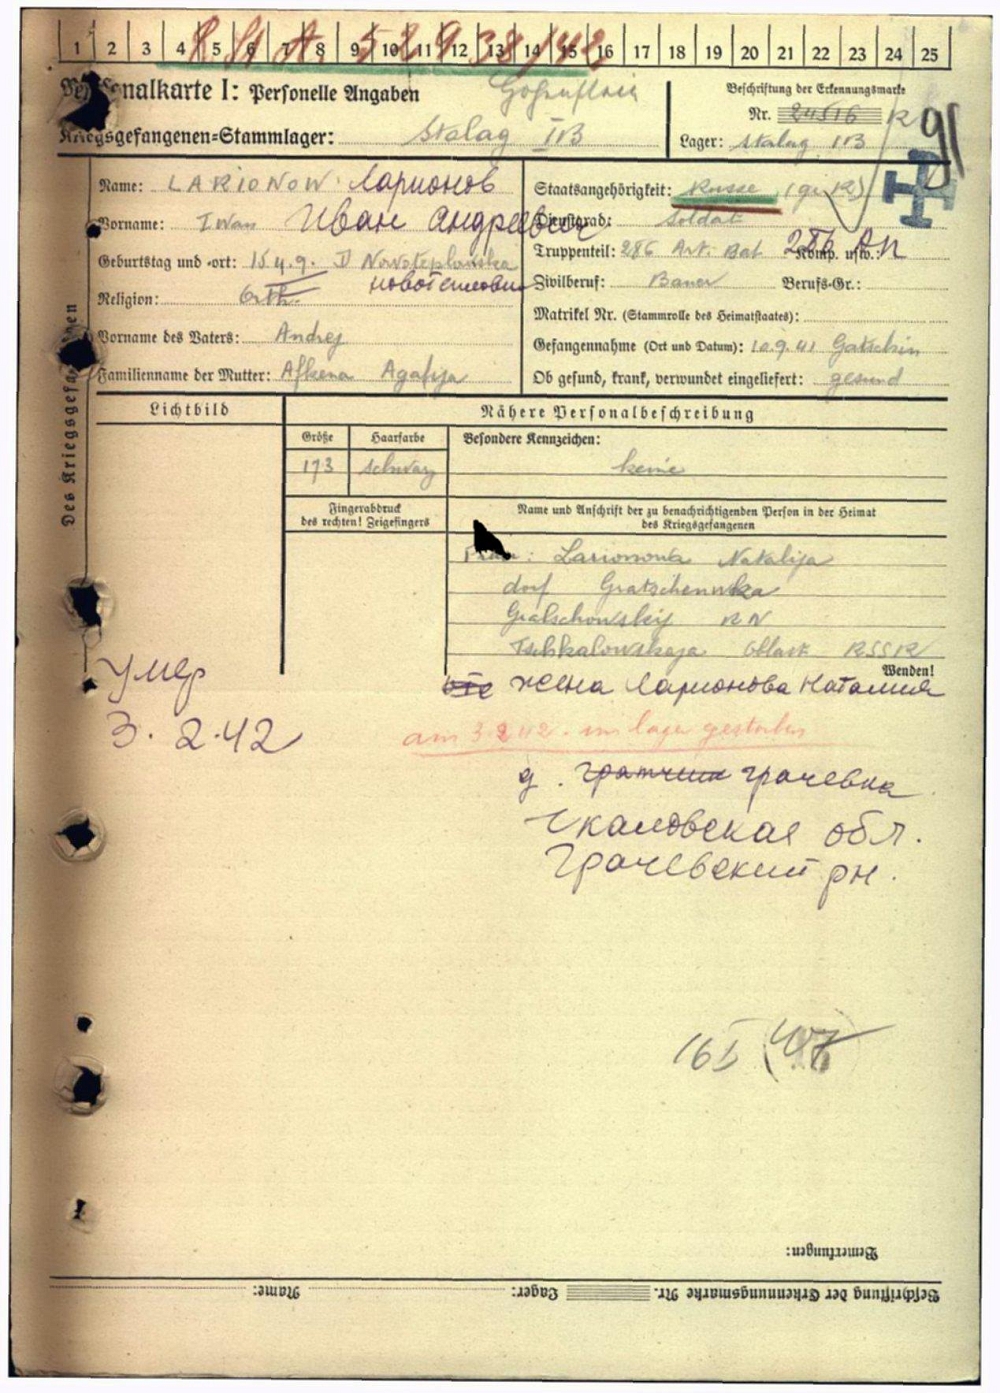 1 2 3 4 5 6 7 8 9 10 11 12 13 14 15 16 17 18 19 20 21 22 23 24 25
Personalkarte I: Personelle Angaben
Kriegsgefangenen-Stammlager: Stalag II B
Beschriftung der Erkennungsmarke
Nr. 24516 R
Lager: Stalag II B
91
Des Kriegsgefangenen
Name: LARIONOW Ларионов
Vorname: Iwan Иван Андреевич
Geburtstag und -ort: 15.4.9.
Religion: Orth.
Vorname des Vaters: Andrej
Familienname der Mutter: Agafija
Staatsangehörigkeit: Russe
Dienstgrad: Soldat
Truppenteil: 286 Art. Bat. Komp. usw.:
Zivilberuf: Bauer Berufs-Gr.:
Matrikel Nr. (Stammrolle des Heimatstaates):
Gefangennahme (Ort und Datum): 10.9.41 Gatschin
Ob gesund, krank, verwundet eingeliefert: gesund
Lichtbild
Nähere Personalbeschreibung
Größe Haarfarbe Besondere Kennzeichen:
173 schwarz keine
Fingerabdruck
des rechten! Zeigefingers
Name und Anschrift der zu benachrichtigenden Person in der Heimat
des Kriegsgefangenen
Frau: Larionowa Natalija
dorf Gratschenwka
Gratschowskij RN
Tschkalowskaja Oblast RSSR
Wenden!
умер
3.2.42
жена Ларионова Наталия
am 3.2.42. im lager gestorben
д. грачевка
Чкаловская обл.
Грачевский рн.
Bemerkungen:
Beschriftung der Erkennungsmarke Nr. Lager: Name: